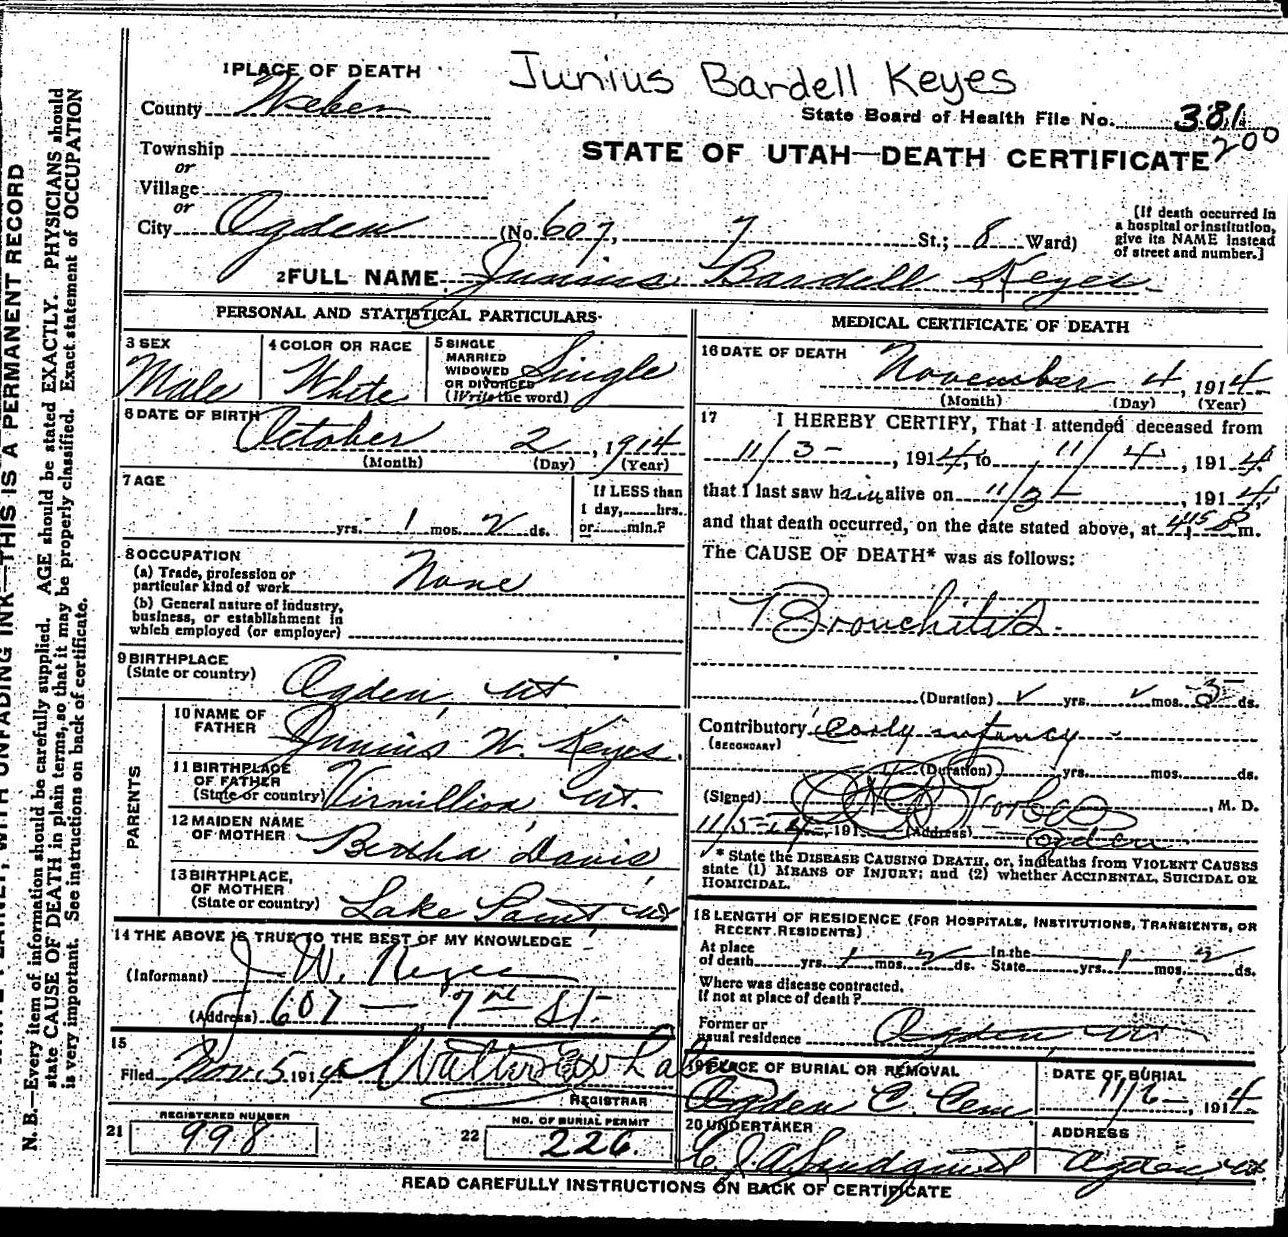 Junius Bardell Keyes
1 PLACE OF DEATH
County Weber
State Board of Health File No. 381
200
Township
or
Village
or
STATE OF UTAH—DEATH CERTIFICATE
City Ogden (No. 607, 7 St.; 8 Ward)
[If death occurred in a hospital or institution, give its NAME instead of street and number.]
2 FULL NAME Junius Bardell Keyes
PERSONAL AND STATISTICAL PARTICULARS
3 SEX
Male
4 COLOR OR RACE
White
5 SINGLE MARRIED WIDOWED OR DIVORCED
(Write the word)
Single
6 DATE OF BIRTH
October 2, 1914
(Month) (Day) (Year)
7 AGE
yrs. 1 mos. 2 ds.
If LESS than
1 day,......hrs.
or......min.?
8 OCCUPATION
(a) Trade, profession or
particular kind of work None
(b) General nature of industry,
business, or establishment in
which employed (or employer)
9 BIRTHPLACE
(State or country) Ogden, Ut
PARENTS
10 NAME OF
FATHER Junius W. Keyes.
11 BIRTHPLACE
OF FATHER
(State or country) Virmillion, Ut.
12 MAIDEN NAME
OF MOTHER Bertha Davis
13 BIRTHPLACE,
OF MOTHER
(State or country) Lake Paint Ut
14 THE ABOVE IS TRUE TO THE BEST OF MY KNOWLEDGE
(Informant) J. W. Keyes
(Address) 607 — 7 St.
15
Filed Nov. 5 1914
REGISTRAR
REGISTERED NUMBER
21 998
NO. OF BURIAL PERMIT
22 226
MEDICAL CERTIFICATE OF DEATH
16 DATE OF DEATH November 4, 1914
(Month) (Day) (Year)
17 I HEREBY CERTIFY, That I attended deceased from
11/3-, 1914, to 11/4, 1914.
that I last saw him alive on 11/3-, 1914,
and that death occurred, on the date stated above, at m.
The CAUSE OF DEATH* was as follows:
Bronchitis
(Duration) yrs. mos. 3 ds.
Contributory Early infancy
(SECONDARY)
(Duration) yrs. mos. ds.
(Signed) Forbes, M. D.
11/5-14, 191 (Address) Ogden
* State the DISEASE CAUSING DEATH, or, in deaths from VIOLENT CAUSES
state (1) MEANS OF INJURY; and (2) whether ACCIDENTAL, SUICIDAL OR
HOMICIDAL.
18 LENGTH OF RESIDENCE (FOR HOSPITALS, INSTITUTIONS, TRANSIENTS, OR
RECENT RESIDENTS)
At place
of death yrs. 1 mos. 2 ds. In the State yrs. 1 mos. 2 ds.
Where was disease contracted,
If not at place of death?
Former or
usual residence Ogden, Ut
19 PLACE OF BURIAL OR REMOVAL
Ogden C. Cem
DATE OF BURIAL
11/6-, 1914.
20 UNDERTAKER
ADDRESS
Ogden, Ut.
READ CAREFULLY INSTRUCTIONS ON BACK OF CERTIFICATE
UNFADING INK—THIS IS A PERMANENT RECORD
N. B.—Every item of information should be carefully supplied. AGE should be stated EXACTLY. PHYSICIANS should
state CAUSE OF DEATH in plain terms, so that it may be properly classified. Exact statement of OCCUPATION
is very important. See instructions on back of certificate.